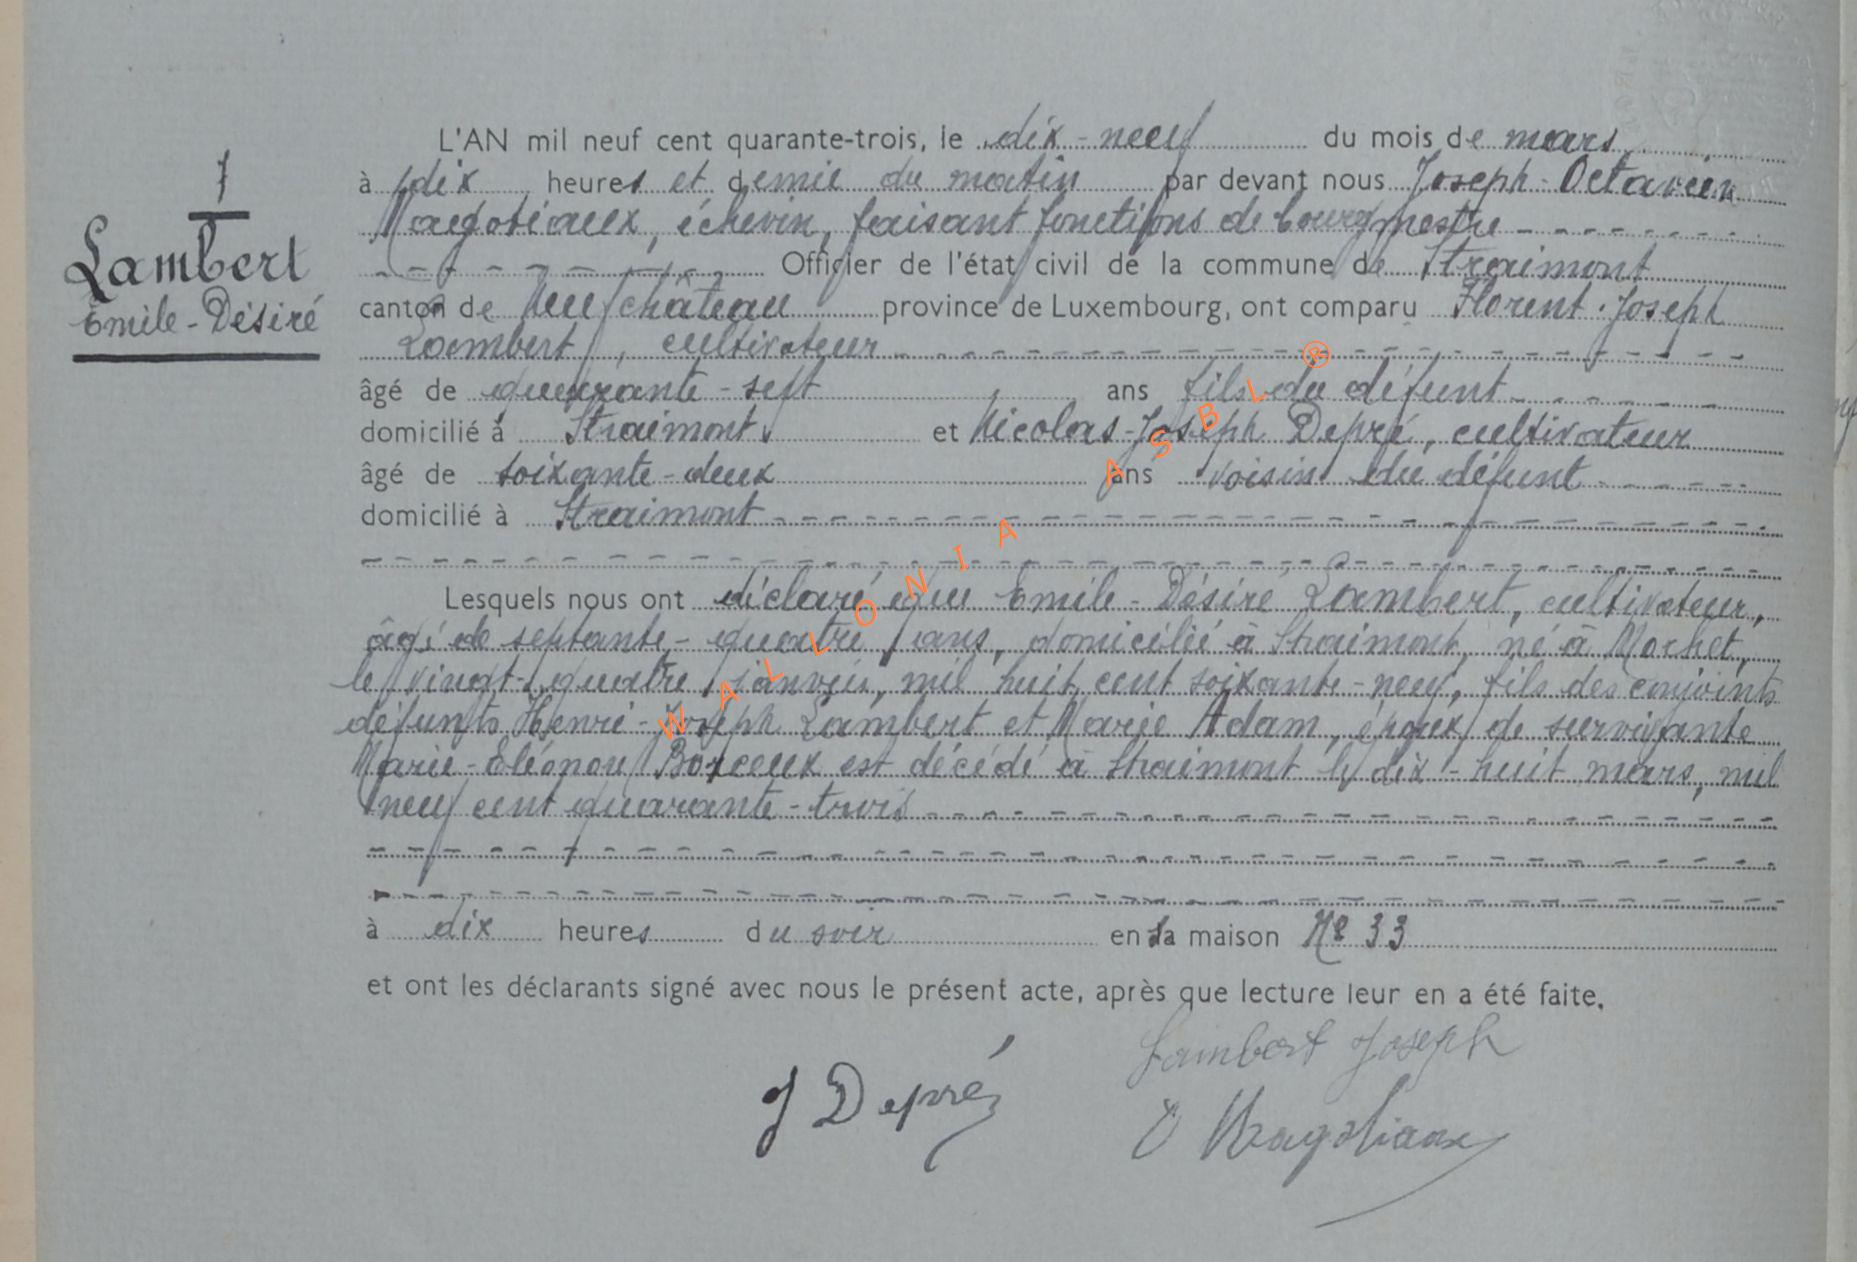 7
Lambert
Emile-Désiré
L'AN mil neuf cent quarante-trois, le dix-neuf du mois de mars
à dix heures et demie du matin par devant nous Joseph-Octavien
Magotiaux, échevin, faisant fonctions de bourgmestre
Officier de l'état civil de la commune de Straimont
canton de Neufchâteau province de Luxembourg, ont comparu Florent-Joseph
Lambert, cultivateur
âgé de quarante-sept ans fils du défunt
domicilié à Straimont et Nicolas-Joseph Depré, cultivateur
âgé de soixante-deux ans voisin du défunt
domicilié à Straimont
Lesquels nous ont déclaré que Emile-Désiré Lambert, cultivateur,
âgé de septante-quatre ans, domicilié à Straimont, né à Morhet,
le vingt-quatre janvier, mil huit cent soixante-neuf, fils des conjoints
défunts Henri-Joseph Lambert et Marie Adam, époux de survivante
Marie-Eléonore Borceux est décédé à Straimont le dix-huit mars, mil
neuf cent quarante-trois
à dix heures du soir en la maison N° 33
et ont les déclarants signé avec nous le présent acte, après que lecture leur en a été faite.
Lambert Joseph
J Depré
O Magotiaux
WALLONIA ASBL ®